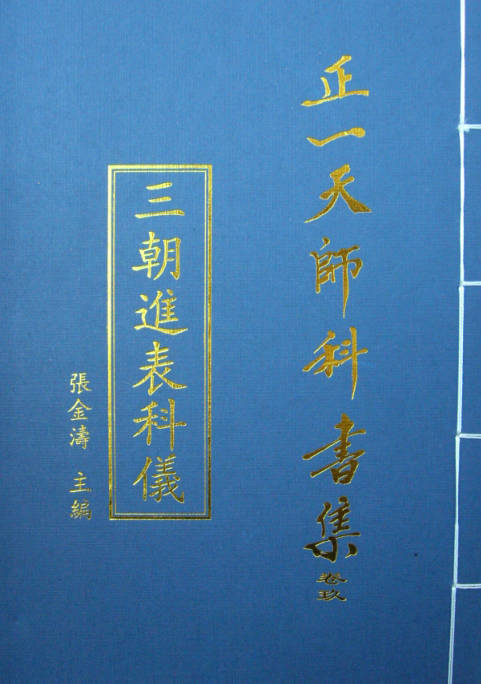 正一天師科書集
卷玖
三朝進表科儀
張金濤 主編